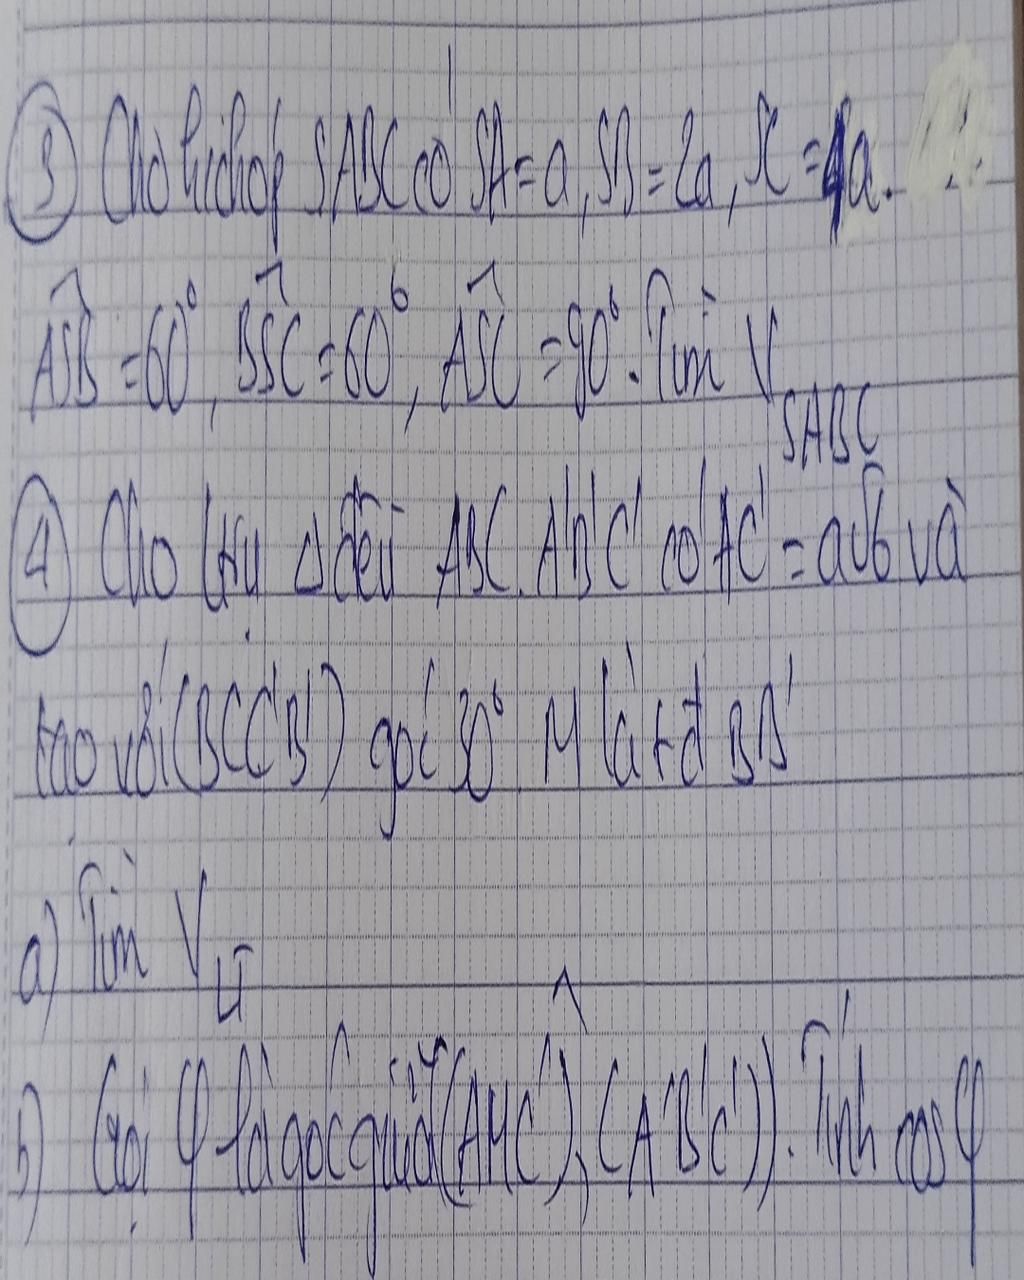 ③ Cho hichóp SABC có SA = a, SB = 2a, SC = 4a.
ASB = 60°, BSC = 60°, ASC = 90°. Tìm V SABC
④ Cho ltrụ △ đều ABC.A'B'C' có AC' = a√6 và
tạo với (BCC'B') góc 30° M là tđ BB'
a) Tìm V LT
b) Gọi φ là góc giữa ((AMC'), (A'B'C')). Tính cos φ